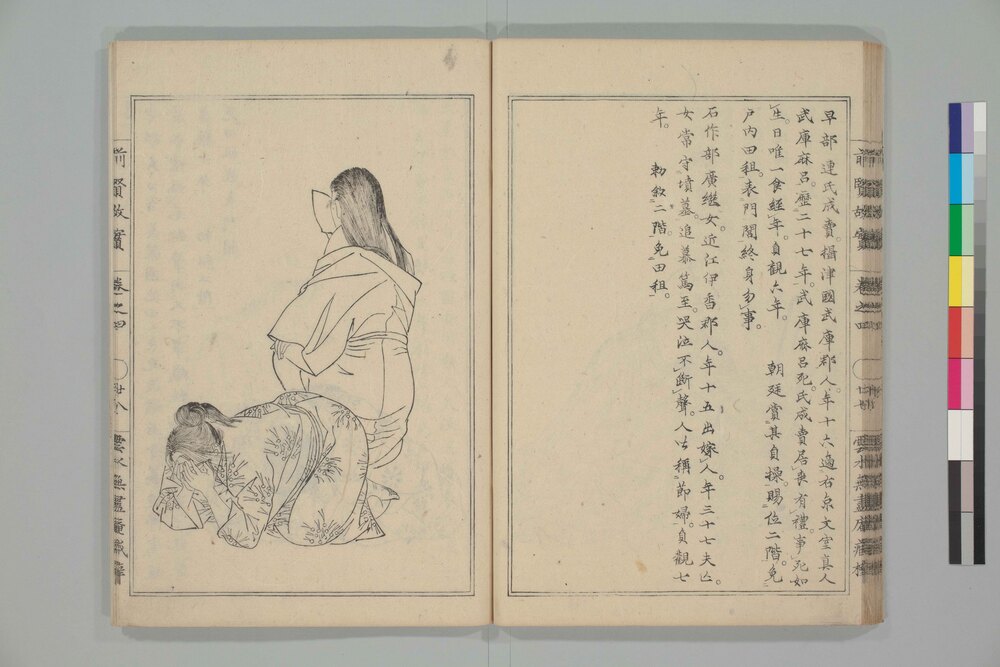 早部連氏成賣。攝津國武庫郡人。年十六適右京文室眞人
武庫麻呂。歷二十七年。武庫麻呂死。氏成賣居喪有禮。事死如
生。日唯一食。經年。貞觀六年。朝廷賞其貞操。賜位二階。免
戶內田租。表門閭。終身勿事。
石作部廣繼女。近江伊香郡人。年十五出嫁人。年三十七夫亡。
女常守墳墓。追慕篤至。哭泣不斷聲。人皆稱節婦。貞觀七
年。勅敘二階免田租。
前賢故實
卷之四
雲水無盡庵藏